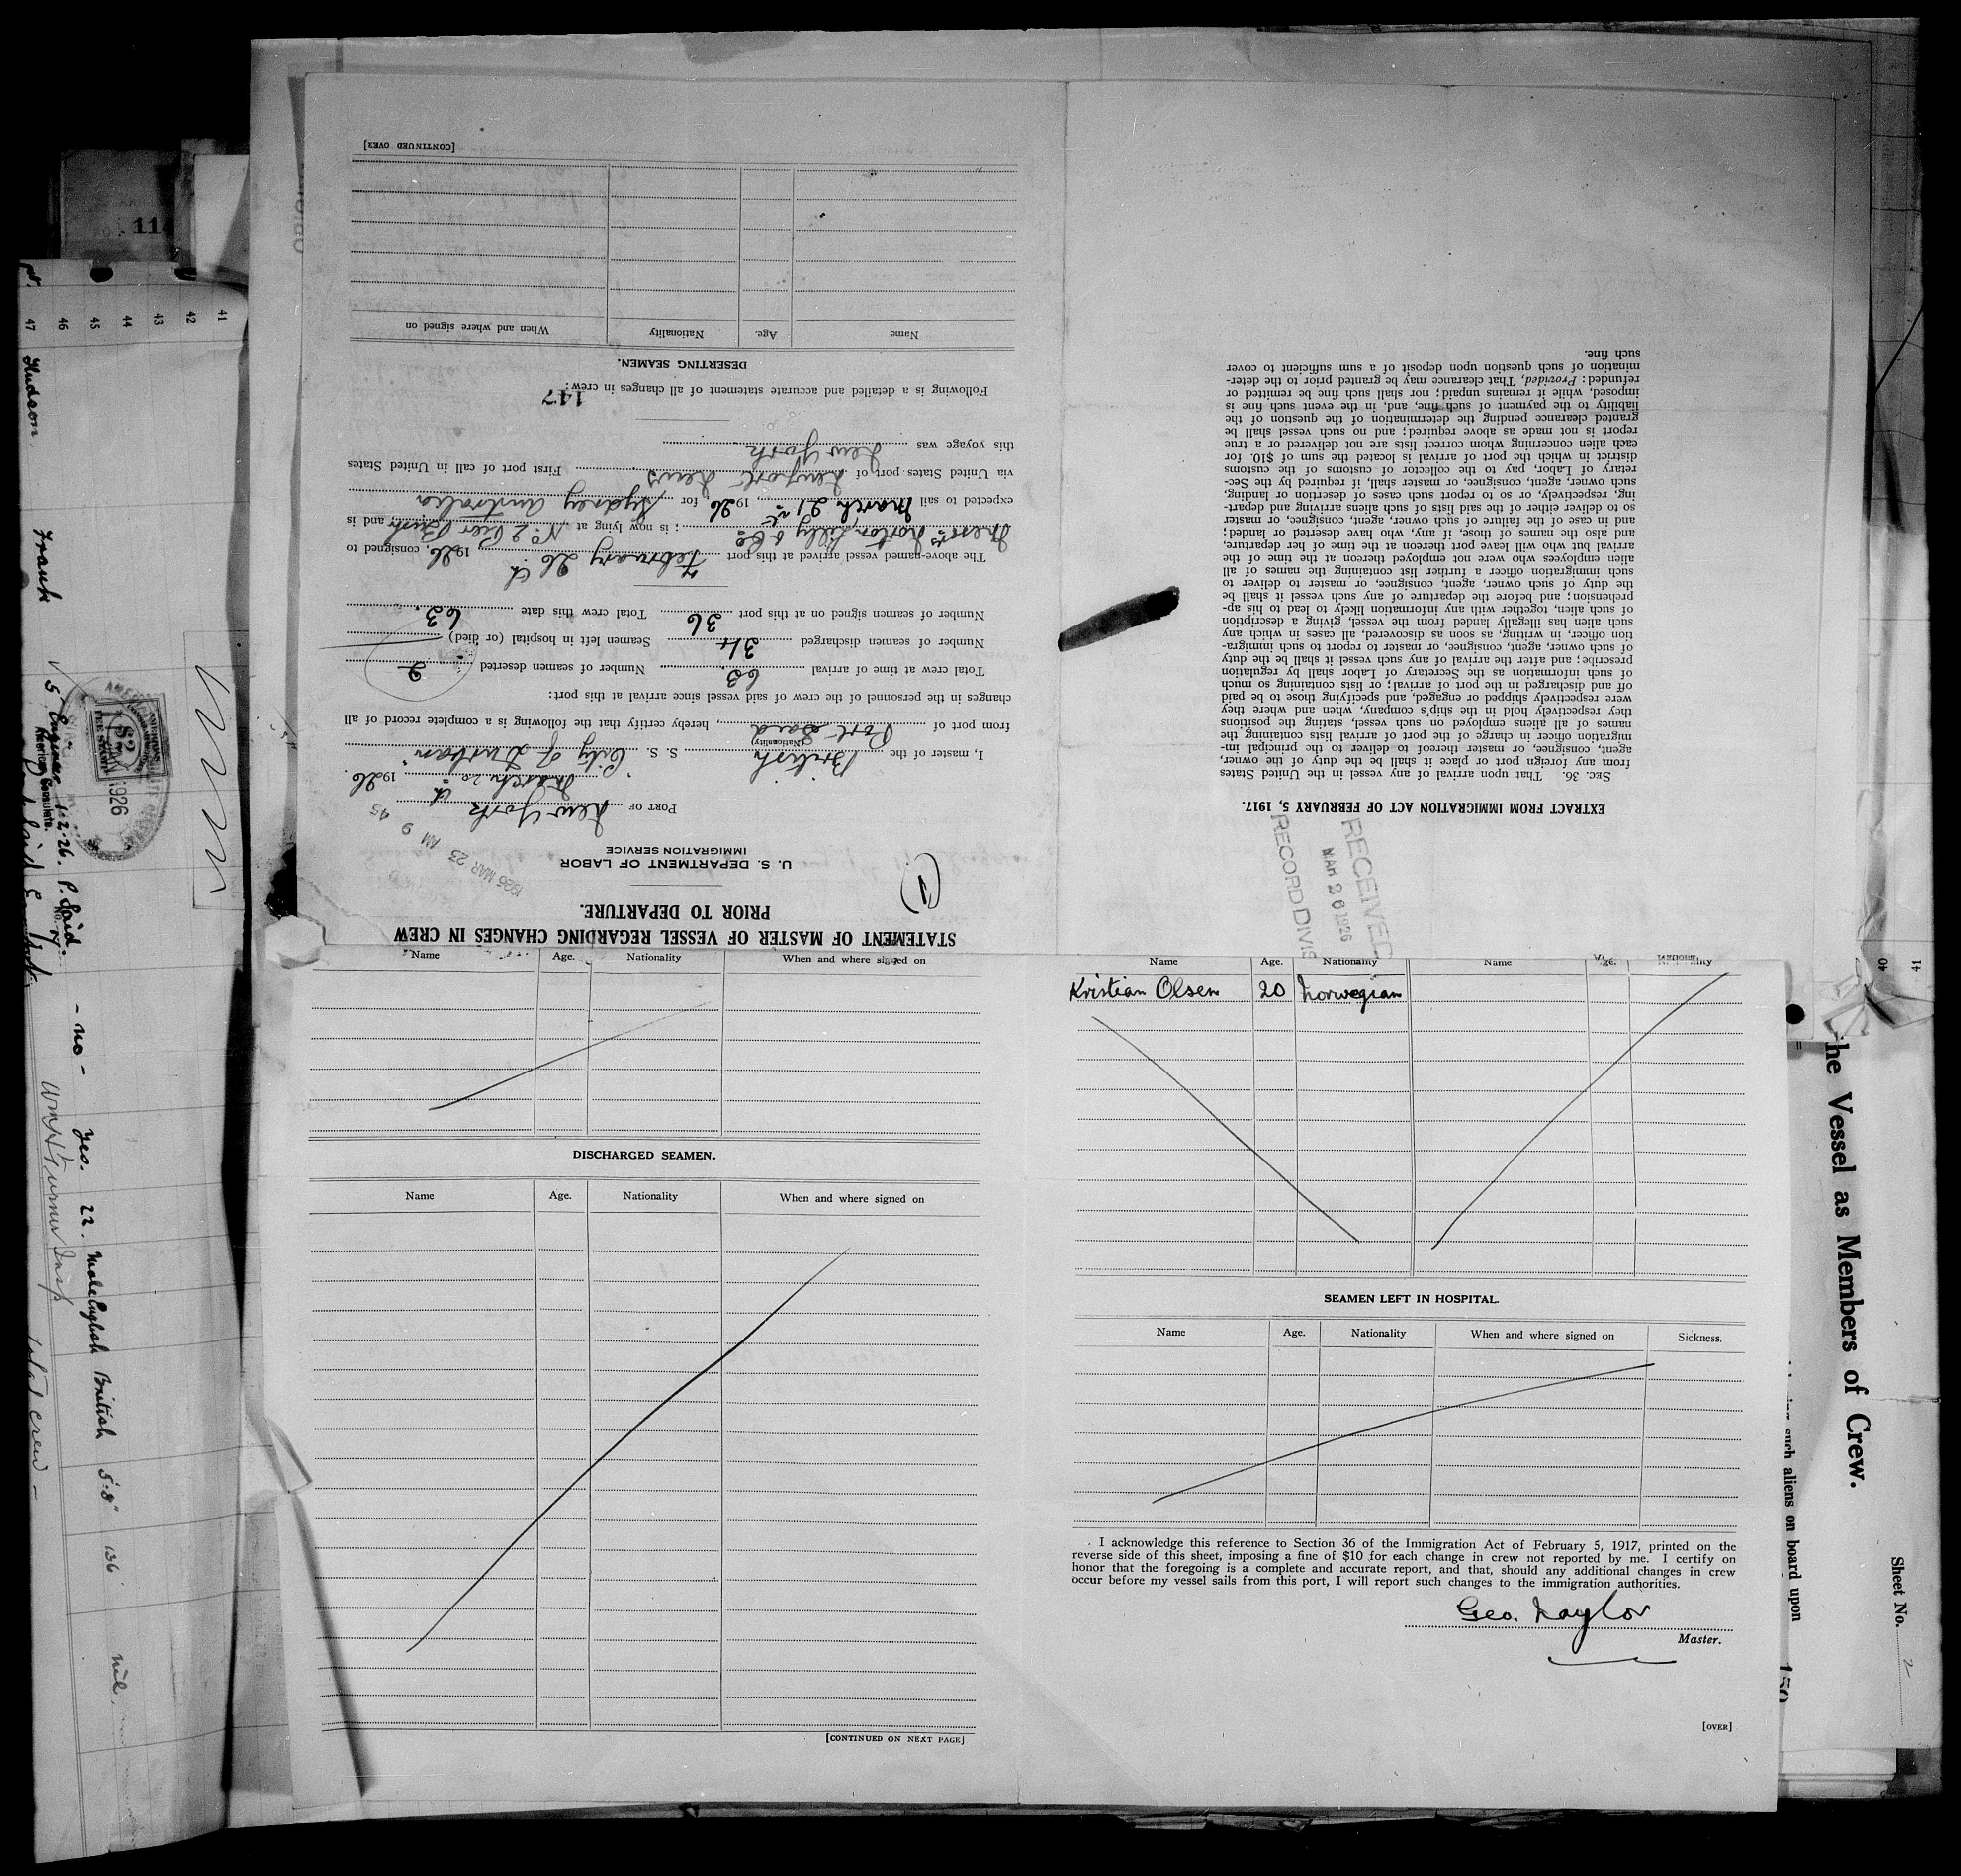 STATEMENT OF MASTER OF VESSEL REGARDING CHANGES IN CREW
PRIOR TO DEPARTURE.
(1)
U. S. DEPARTMENT OF LABOR
IMMIGRATION SERVICE
1926 MAR 23 AM 9 45
PORT OF New York
March 22 1926.
I, master of the British S. S. "City of Durban"
(Nationality)
from port of Port Said, hereby certify that the following is a complete record of all
changes in the personnel of the crew of said vessel since arrival at this port:
Total crew at time of arrival 63. Number of seamen deserted 2
Number of seamen discharged 34 Seamen left in hospital (or died)
Number of seamen signed on at this port 36 Total crew this date 63.
The above-named vessel arrived at this port February 26th 1926, consigned to
Messrs Norton Lilly & Co; is now lying at No. 2 Pier Bush and is
expected to sail March 21st, 1926 for Sydney Australia
via United States port of Newport News First port of call in United States
this voyage was New York
147
Following is a detailed and accurate statement of all changes in crew:
DESERTING SEAMEN.
Name Age. Nationality When and where signed on
[CONTINUED OVER]
EXTRACT FROM IMMIGRATION ACT OF FEBRUARY 5, 1917.
SEC. 36. That upon arrival of any vessel in the United States
from any foreign port or place it shall be the duty of the owner,
agent, consignee, or master thereof to deliver to the principal im-
migration officer in charge of the port of arrival lists containing the
names of all aliens employed on such vessel, stating the positions
they respectively hold in the ship's company, when and where they
were respectively shipped or engaged, and specifying those to be paid
off and discharged in the port of arrival; or lists containing so much
of such information as the Secretary of Labor shall by regulation
prescribe; and after the arrival of any such vessel it shall be the duty
of such owner, agent, consignee, or master to report to such immigra-
tion officer, in writing, as soon as discovered, all cases in which any
such alien has illegally landed from the vessel, giving a description
of such alien, together with any information likely to lead to his ap-
prehension; and before the departure of any such vessel it shall be
the duty of such owner, agent, consignee, or master to deliver to
such immigration officer a further list containing the names of all
alien employees who were not employed thereon at the time of the
arrival but who will leave port thereon at the time of her departure,
and also the names of those, if any, who have deserted or landed;
and in case of the failure of such owner, agent, consignee, or master
so to deliver either of the said lists of such aliens arriving and depart-
ing, respectively, or so to report such cases of desertion or landing,
such owner, agent, consignee, or master shall, if required by the Sec-
retary of Labor, pay to the collector of customs of the customs
district in which the port of arrival is located the sum of $10. for
each alien concerning whom correct lists are not delivered or a true
report is not made as above required; and no such vessel shall be
granted clearance pending the determination of the question of the
liability to the payment of such fine, and, in the event such fine is
imposed, while it remains unpaid; nor shall such fine be remitted or
refunded: Provided, That clearance may be granted prior to the deter-
mination of such question upon deposit of a sum sufficient to cover
such fine.
RECEIVED
MAR 26 1926
RECORD DIVIS
Name Age. Nationality When and where signed on
DISCHARGED SEAMEN.
Name Age. Nationality When and where signed on
[CONTINUED ON NEXT PAGE]
Name Age. Nationality Name Age. Nationality
Kristian Olsen 20 Norwegian
SEAMEN LEFT IN HOSPITAL.
Name Age. Nationality When and where signed on Sickness.
I acknowledge this reference to Section 36 of the Immigration Act of February 5, 1917, printed on the
reverse side of this sheet, imposing a fine of $10 for each change in crew not reported by me. I certify on
honor that the foregoing is a complete and accurate report, and that, should any additional changes in crew
occur before my vessel sails from this port, I will report such changes to the immigration authorities.
Geo. Naylor
Master.
[OVER]
114
41
42
43
44
45
46
47
Hudson. Frank 5 Engineer 1-2-26. P. Said. - no - Yes. 22. Male English British 5'-8" 136 nil.
American Consulate.
1926
the Vessel as Members of Crew.
such aliens on board upon
Sheet No. 2
150
40
41